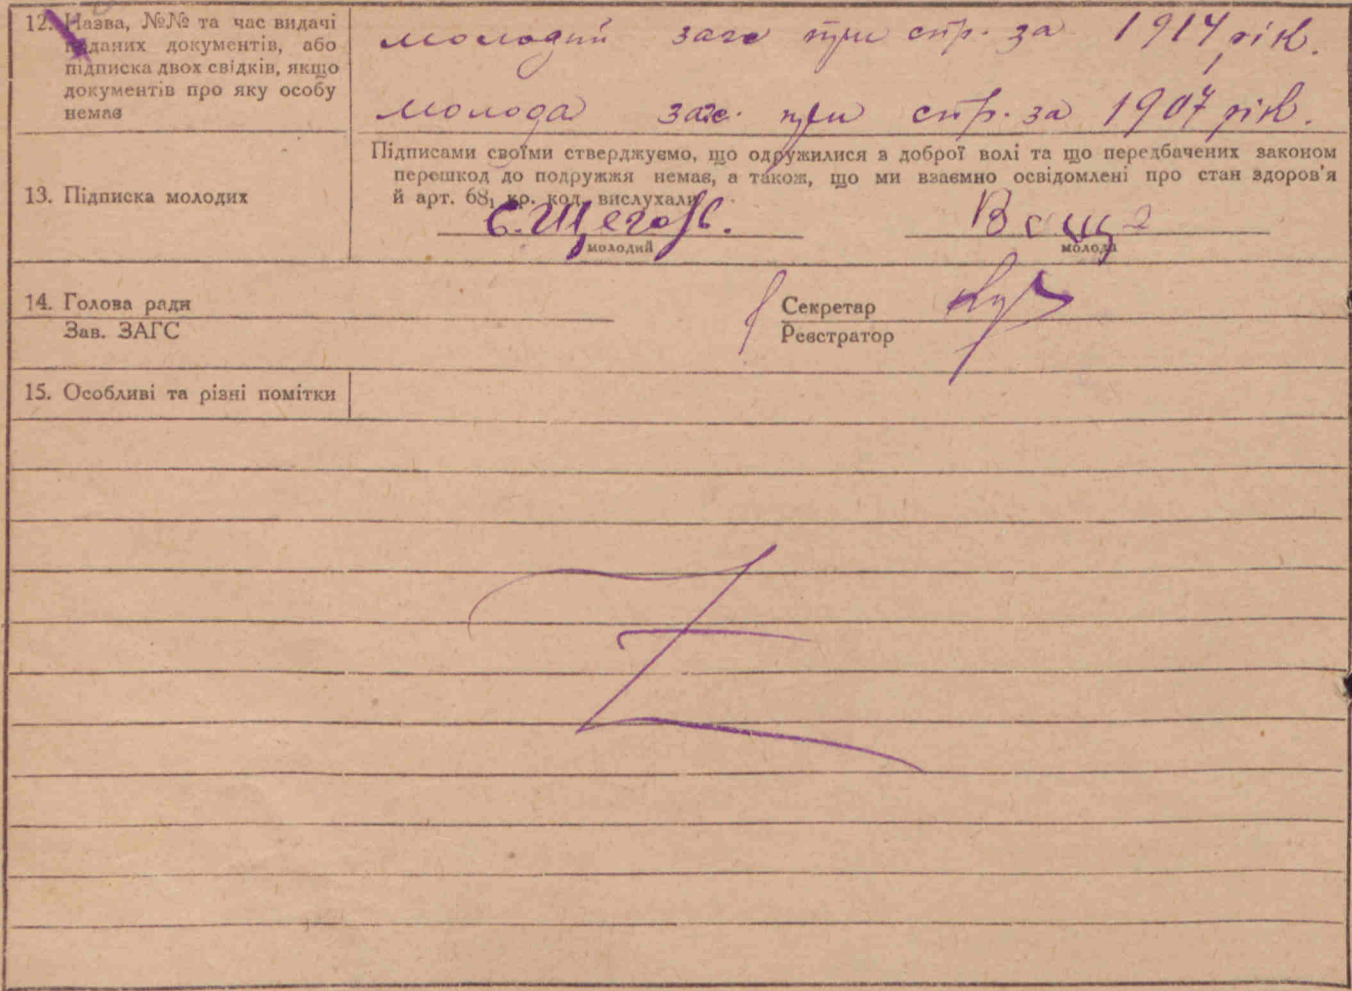 12. Назва, №№ та час видачі
поданих документів, або
підписка двох свідків, якщо
документів про яку особу
немає
молодий загс при стр. за 1914 рік.
молода загс. при стр. за 1907 рік.
13. Підписка молодих
Підписами своїми стверджуємо, що одружилися з доброї волі та що передбачених законом
перешкод до подружжя немає, а також, що ми взаємно освідомлені про стан здоров'я
й арт. 68₁ кр. код. вислухали
молодий
молода
14. Голова ради
Зав. ЗАГС
Секретар
Реєстратор
15. Особливі та різні помітки